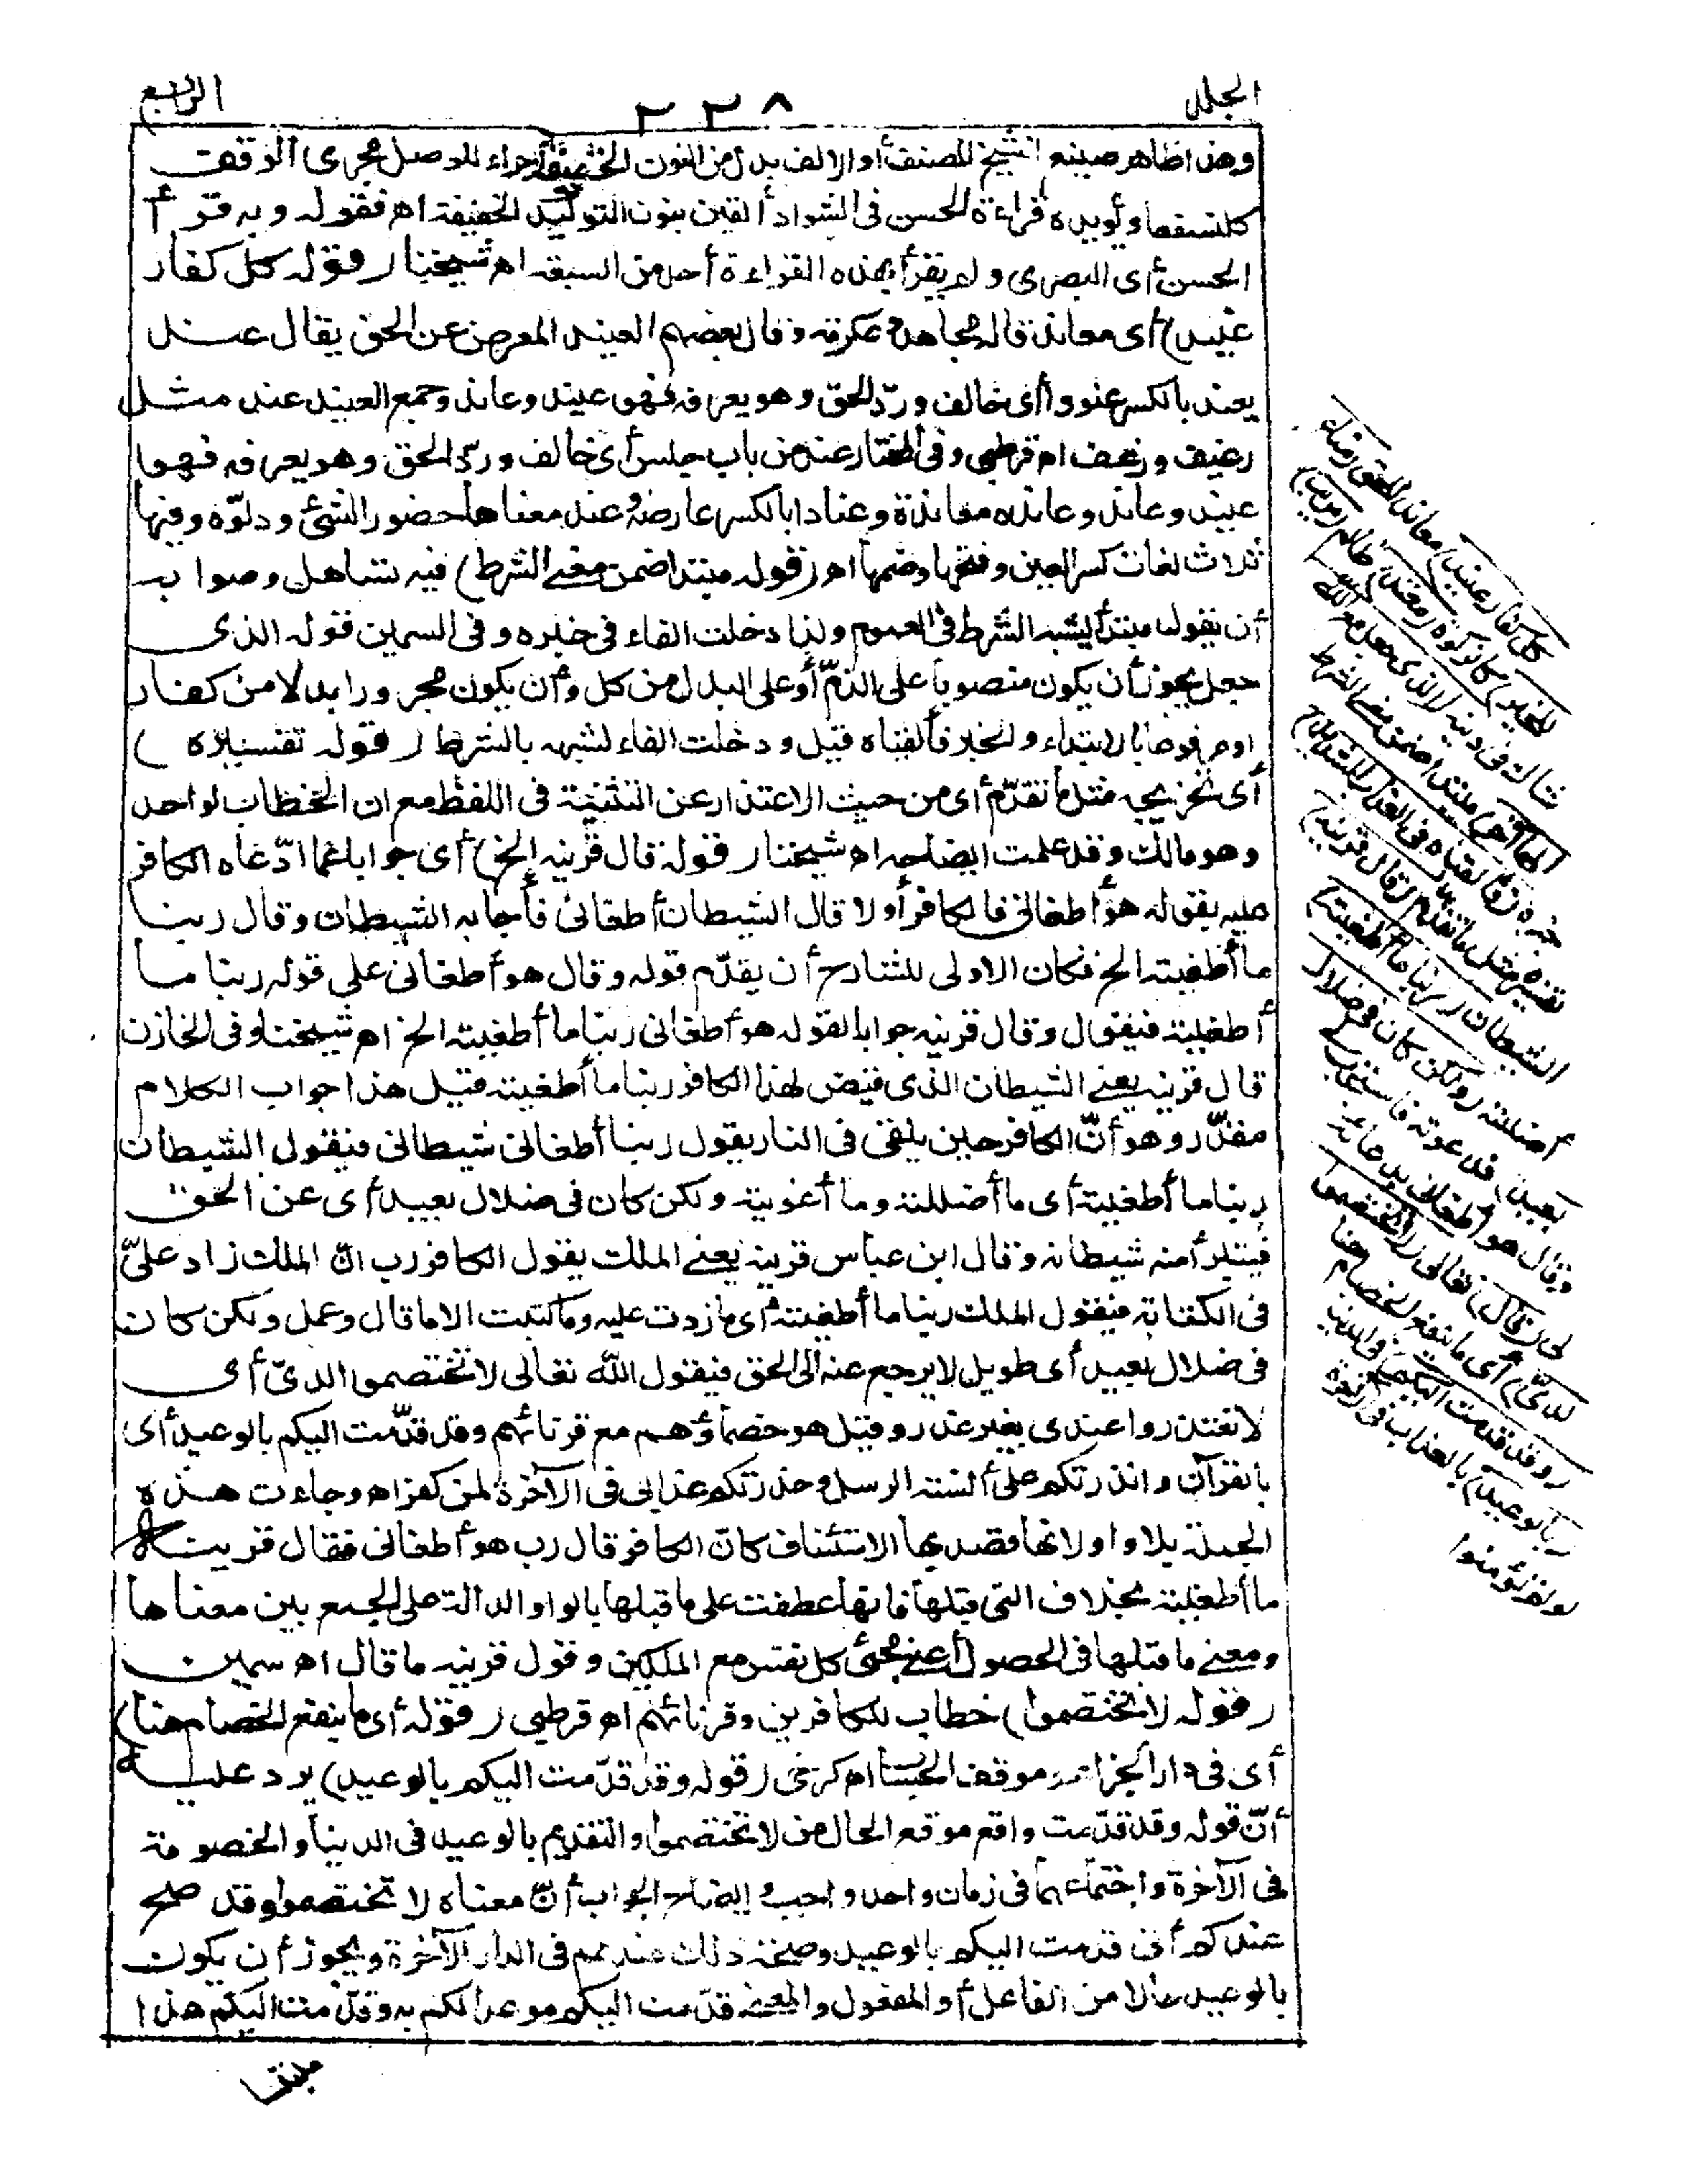 الجلد
٢٣٨
الرابع
وهذا ظاهر صنيع الشيخ المصنف أو الالف بدل من النون الخفيفة اجراء للوصل مجرى الوقف
كلنسفعا ويؤيده قراءة الحسن فى الشواذ ألقين بنون التوكيد الخفيفة اه فقوله وبه قرأ
الحسن أى البصرى ولم يقرأ بهذه القراءة أحد من السبعة اه شيخنا (قوله كل كفار
عنيد) أى معاند قاله مجاهد وعكرمة وقال بعضهم العنيد المعرض عن الحق يقال عند
يعند بالكسر عنودا أى خالف وردّ الحق وهو يعرفه فهو عنيد وعاند وجمع العنيد عند مثل
رغيف ورغف اه قرطبى وفى المختار عند من باب جلس أى خالف وردّ الحق وهو يعرفه فهو
عنيد وعاند وعانده معاندة وعنادا بالكسر عارضه وعند معناها حضور الشئ ودنوّه وفيها
ثلاث لغات كسر العين وفتحها وضمها اه (قوله مبتدا ضمن معنى الشرط) فيه تساهل وصوابه
أن يقول مبتدأ يشبه الشرط فى العموم ولذا دخلت الفاء فى خبره وفى السمين قوله الذى
جعل يجوز أن يكون منصوبا على الذمّ أو على البدل من كل وأن يكون مجرورا بدلا من كفار
اومرفوعا بالابتداء والخبر فألقياه قيل ودخلت الفاء لشبهه بالشرط (قوله تفسيره)
أى تخريجه مثل ما تقدّم أى من حيث الاعتذار عن التثنية فى اللفظ مع ان الخطاب لواحد
وهو مالك وقد علمت ايضاحه اه شيخنا (قوله قال قرينه الخ) أى جوابا عما ادّعاه الكافر
عليه بقوله هو أطغانى فالكافر أولا قال الشيطان أطغانى فأجابه الشيطان وقال ربنا
ما أطغيته الخ فكان الاولى للشارح أن يقدّم قوله وقال هو أطغانى على قوله ربنا ما
أطغيته فيقول وقال قرينه جوابا لقوله هو أطغانى ربنا ما أطغيته الخ اه شيخنا وفى الخازن
قال قرينه يعنى الشيطان الذى قيض لهذا الكافر ربنا ما أطغيته قيل هذا جواب الكلام
مقدّر وهو أنّ الكافر حين يلقى فى النار يقول ربنا أطغانى شيطانى فيقول الشيطان
ربنا ما أطغيته أى ما أضللته وما أغويته ولكن كان فى ضلال بعيد أى عن الحق
فيتبرأ منه شيطانه وقال ابن عباس قرينه يعنى الملك يقول الكافر رب انّ الملك زاد علىّ
فى الكتابة فيقول الملك ربنا ما أطغيته أى ما زدت عليه وما كتبت الا ما قال وعمل ولكن كان
فى ضلال بعيد أى طويل لا يرجع عنه الى الحق فيقول الله تعالى لا تختصموا لدىّ أى
لا تعتذروا عندى بغير عذر وقيل هو خصماؤهم مع قرنائهم وقد قدّمت اليكم بالوعيد أى
بالقرآن وانذرتكم على ألسنة الرسل وحذرتكم عذابى فى الآخرة لمن كفر اه وجاءت هذه
الجملة بلا واو لانها قصد بها الاستئناف كانّ الكافر قال رب هو أطغانى فقال قرينه
ما أطغيته بخلاف التى قبلها فانها عطفت على ما قبلها بالواو الدالة على الجمع بين معناها
ومعنى ما قبلها فى الحصول أعنى مجئ كل نفس مع الملكين وقول قرينه ما قال اه سمين
(قوله لا تختصموا) خطاب للكافرين وقرنائهم اه قرطبى (قوله أى ما ينفع الخصام هنا)
أى فى دار الجزاء وموقف الحساب اه كرخى (قوله وقد قدّمت اليكم بالوعيد) يرد عليه
أنّ قوله وقد قدّمت واقع موقع الحال من لا تختصموا والتقديم بالوعيد فى الدنيا والخصومة
فى الآخرة واجتماعهما فى زمان واحد واجب وايضاح الجواب أنّ معناه لا تختصموا وقد صح
عندكم أنى قدمت اليكم بالوعيد وصحة ذلك عندهم فى الدار الآخرة ويجوز أن يكون
بالوعيد حالا من الفاعل أو المفعول والمعنى قدّمت اليكم موعدا لكم به وقدّمت اليكم هذا
كل كفار عنيد) معاند للحق (مناع
للخير) كالزكوة (معتد) ظالم (مريب)
شاك فى دينه (الذى جعل مع الله
الها آخر) مبتدا ضمن معنى الشرط
خبره (فألقياه فى العذاب الشديد)
تفسيره مثل ما تقدّم (قال قرينه)
الشيطان (ربنا ما أطغيته)
أضللته (ولكن كان فى ضلال
بعيد) فدعوته فاستجاب لى
وقال هو أطغانى بدعائه
لى (قال) تعالى (لا تختصموا
لدىّ) أى ما ينفع الخصام هنا
(وقد قدمت اليكم) فى الدنيا
(بالوعيد) بالعذاب فى الآخرة
لو لم تؤمنوا